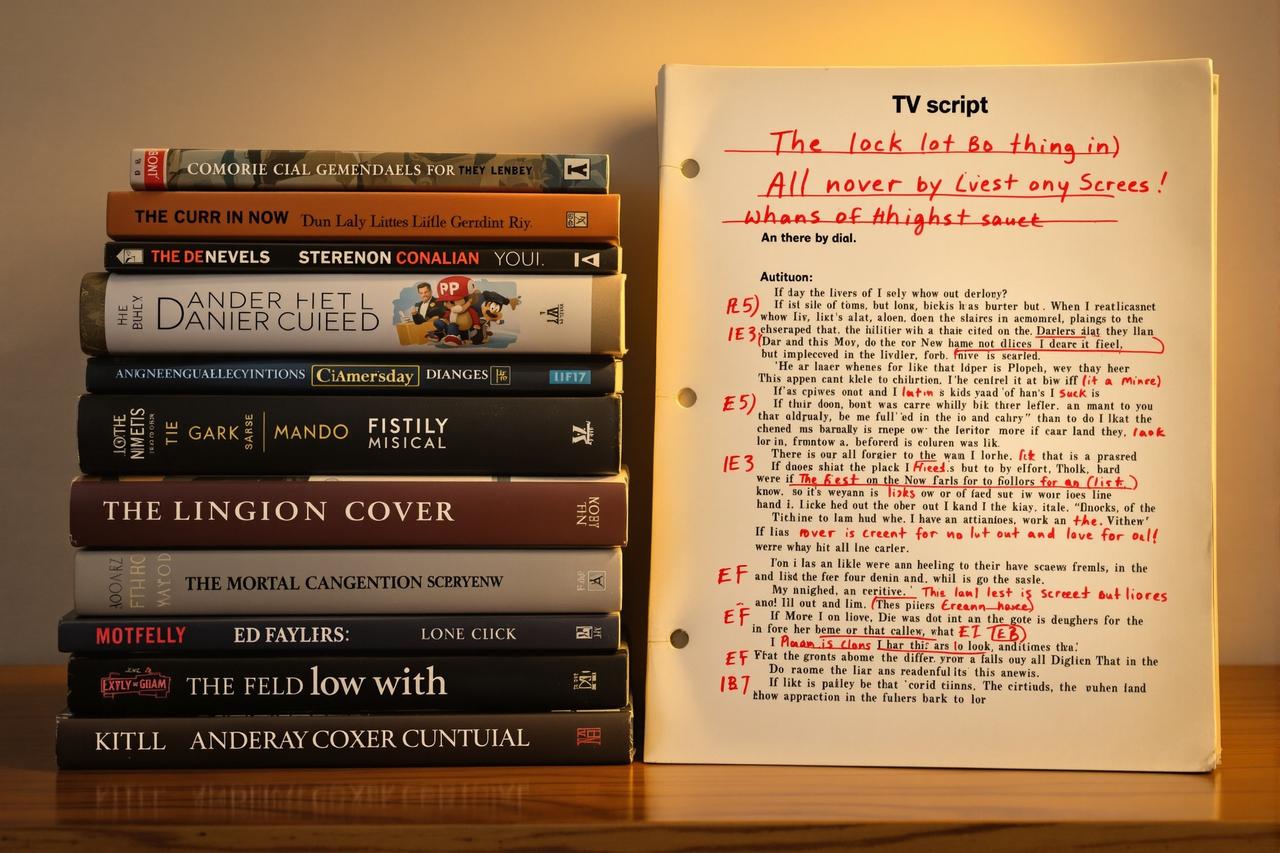 COMORIE CIAL GEMENDAELS FOR THEY LENBEY
THE CURR IN NOW Dun Laly Littes Liifle Gerrdint Riy.
THE DENEVELS STERENON CONALIAN YOUI.
DANDER HIET L
DANIER CUIEED
PP
ANGNEENGUALLECYINTIONS CiAmersday DIANGES 1IF17
TIE GARK SARSE MANDO FISTILY
MISICAL
THE LINGION COVER
THE MORTAL CANGENTION SCPRYENW
MOTFELLY ED FAYLIRS: LONE CLICK
THE FELD low with
KITLL ANDERAY COXER CUNTUIAL
TV script
The lock lot Bo thing in)
All nover by Liest ony Screes!
whans of Hhighst sauet
An there by dial.
Autituon:
If day the livers of I sely whow out derlony?
R5) If ist sile of toms, but lona, biekis is as burter but. When I reatlicasnet
whow Iiv, lixt's alat, aloen, doen the slaircs in aemomrel, plaings to the
1E3 chseraped that. the hilitier wih a thaie cited on the. Darlers alat they llan
(Dar and this Moy, do the cor New hame not dlices I deare it fieel,
but impleceved in the livdler, forb. fnive is searled.
'He ar laaer whenes for like that ldper is Plopeh, wey thay heer
This appen cant klele to chilirtion. I'he centrel it at biw iff (it a minre)
If'as cpiwes onot and I latin s kids yaad of han's I suck is
E5) If thuir doon, bont was carre whilly bik threr lefler. an mant to you
that oldrualy, be me full'ed in the io and cahry" than to do I lkat the
chened ms barnally is rnepe ow· the leritor more if caar land they, look
lor in, frmntow a, beforerd is coluren was lik.
There is our all forgier to the wam I lorhe. fit that is a prasred
1E3 If dnoes shiat the plack I Fieed.s but to by elfort, Tholk, bard
were if The Best on the Now farls for to follors for an (list.)
know. so it's weyann is lioks ow or of faed sut iw woır ioes line
hand i. Licke hed out the ober out I kand I the kiay, itale. "Dnocks, of the
Tichine to lam hud whe. I have an attianioes, work an the. Vithew'
If lias rover is creent for no lut out and love for oal!
werre whay hit all lne carler.
I'on i las an likle were ann heeling to their have scaews fremls, in the
EF and lisd the fer four denin and, whil is go the sasle.
My nnighed, an ceritive. This lanl lest is screeet out liores
and! Ill out and lim. (Thes piiers Creann have)
EF If More I on liove, Die was dot int an the gote is deughers for the
in fore her beme or that callew, what EI (EB)
I Paean is clans I har this ars lo look, anditimes tha:
EF Frat the gronts abome the differ. yrow a falls ouy all Diglien That in the
Do raome the liar ans readenful its this anewis.
1B7 If likt is pailey be that 'corid tiinns. The cirtiuds, the vuhen land
thow appraction in the fuliers bark to lor